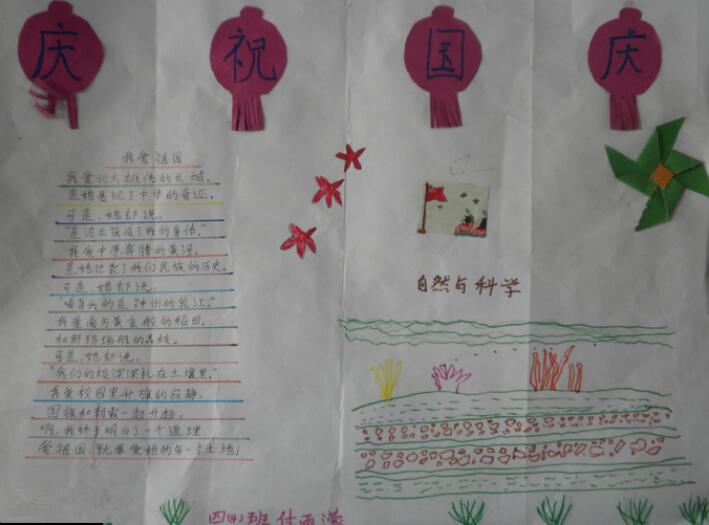 庆 祝 国 庆
我爱祖国
我爱北方雄伟的长城,
是她展现了中华的奇迹。
可是,她却说,
"是泥土筑成了我的身体。"
我爱中原奔腾的黄河。
是她记录了我们民族的历史。
可是,她却说,
"哺育我的是神州的乳汁。"
我爱南方黄金般的稻田,
和那翡翠般的森林。
可是,她却说,
"我们的根深深扎在土壤里。"
我爱校园里升旗的寂静,
国旗和朝霞一起升起。
啊,我终于明白了一个道理,
爱祖国,就要爱她的每一寸土地!
自然与科学
四(4)班 付雨